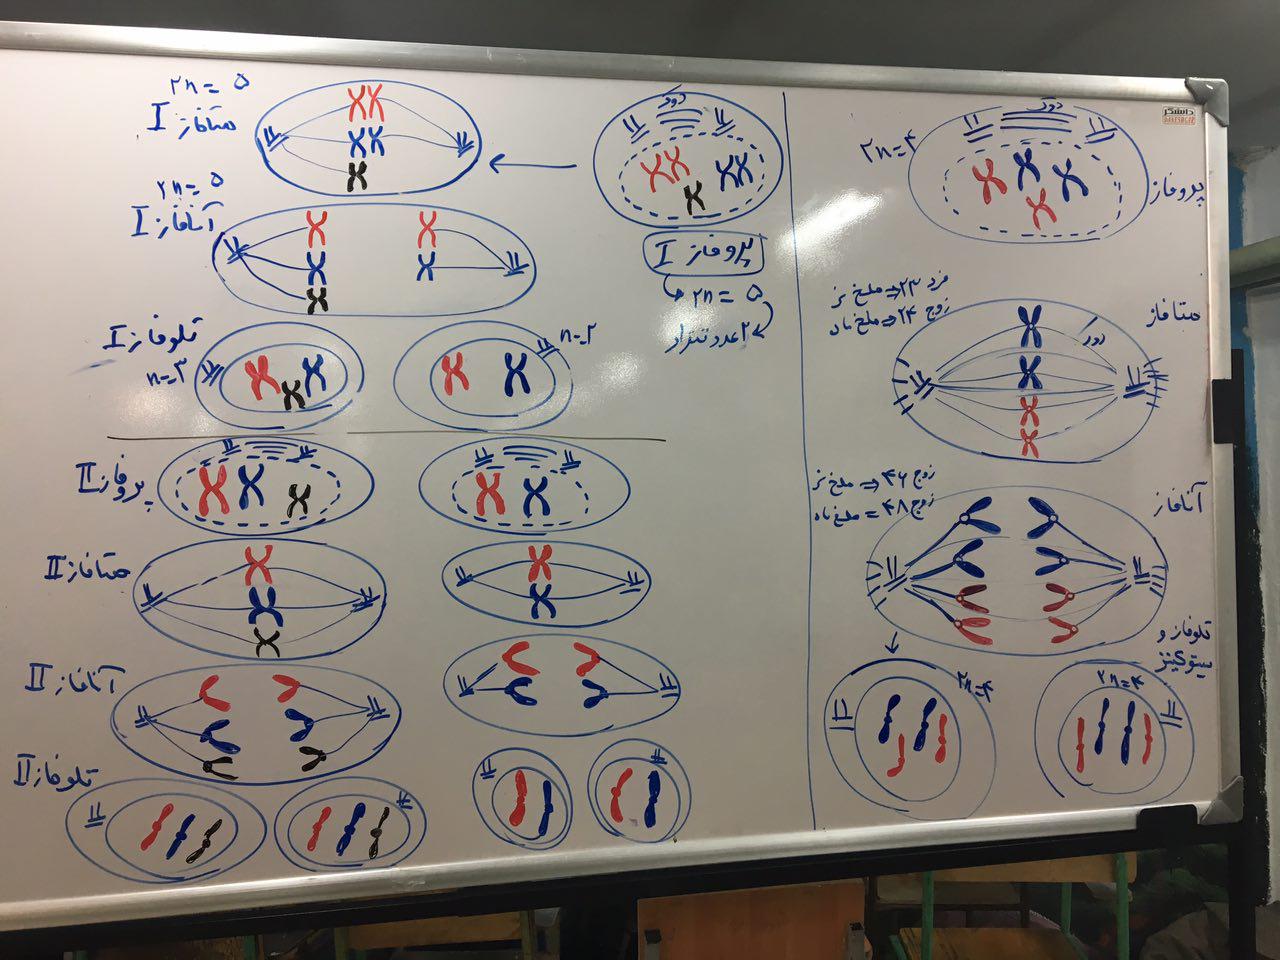 دوک
2n=۴
پروفاز
فرد ۲۳ ⇐ ملخ نر
زوج ۲۴ ⇐ ملخ ماده
متافاز
دوک
زوج ۴۶ ⇐ ملخ نر
زوج ۴۸ = ملخ ماده
آنافاز
تلوفاز و
سیتوکینز
2n=۴
2n=۴
دوک
پروفاز I
2n = ۵
۲ عدد تتراد
2n = ۵
متافاز I
2n = ۵
آنافاز I
تلوفاز I
n=۳
n=۲
پروفاز II
متافاز II
آنافاز II
تلوفاز II
دانشگر